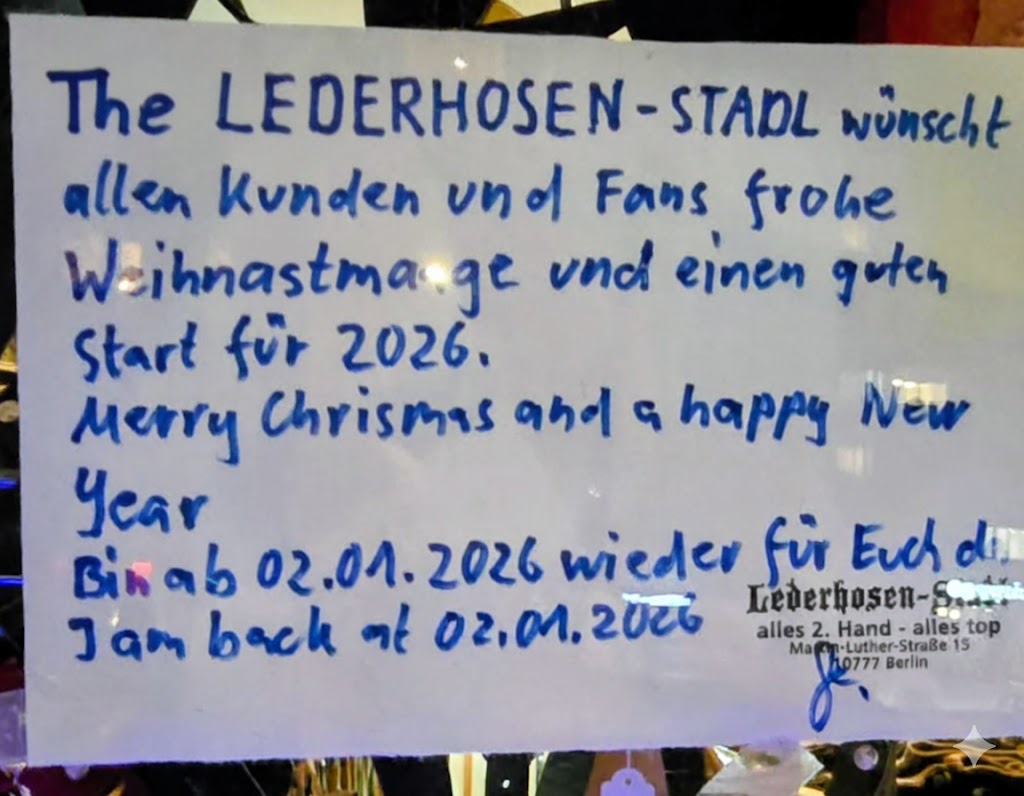 The LEDERHOSEN-STADL wünscht
allen Kunden und Fans frohe
und einen guten
Start für 2026.
Merry Chrismas and a happy New
Year
Bin ab 02.01.2026 wieder für Euch
I am back at 02.01.2026
Lederhosen-Stadl
alles 2. Hand - alles top
Martin-Luther-Straße 15
10777 Berlin